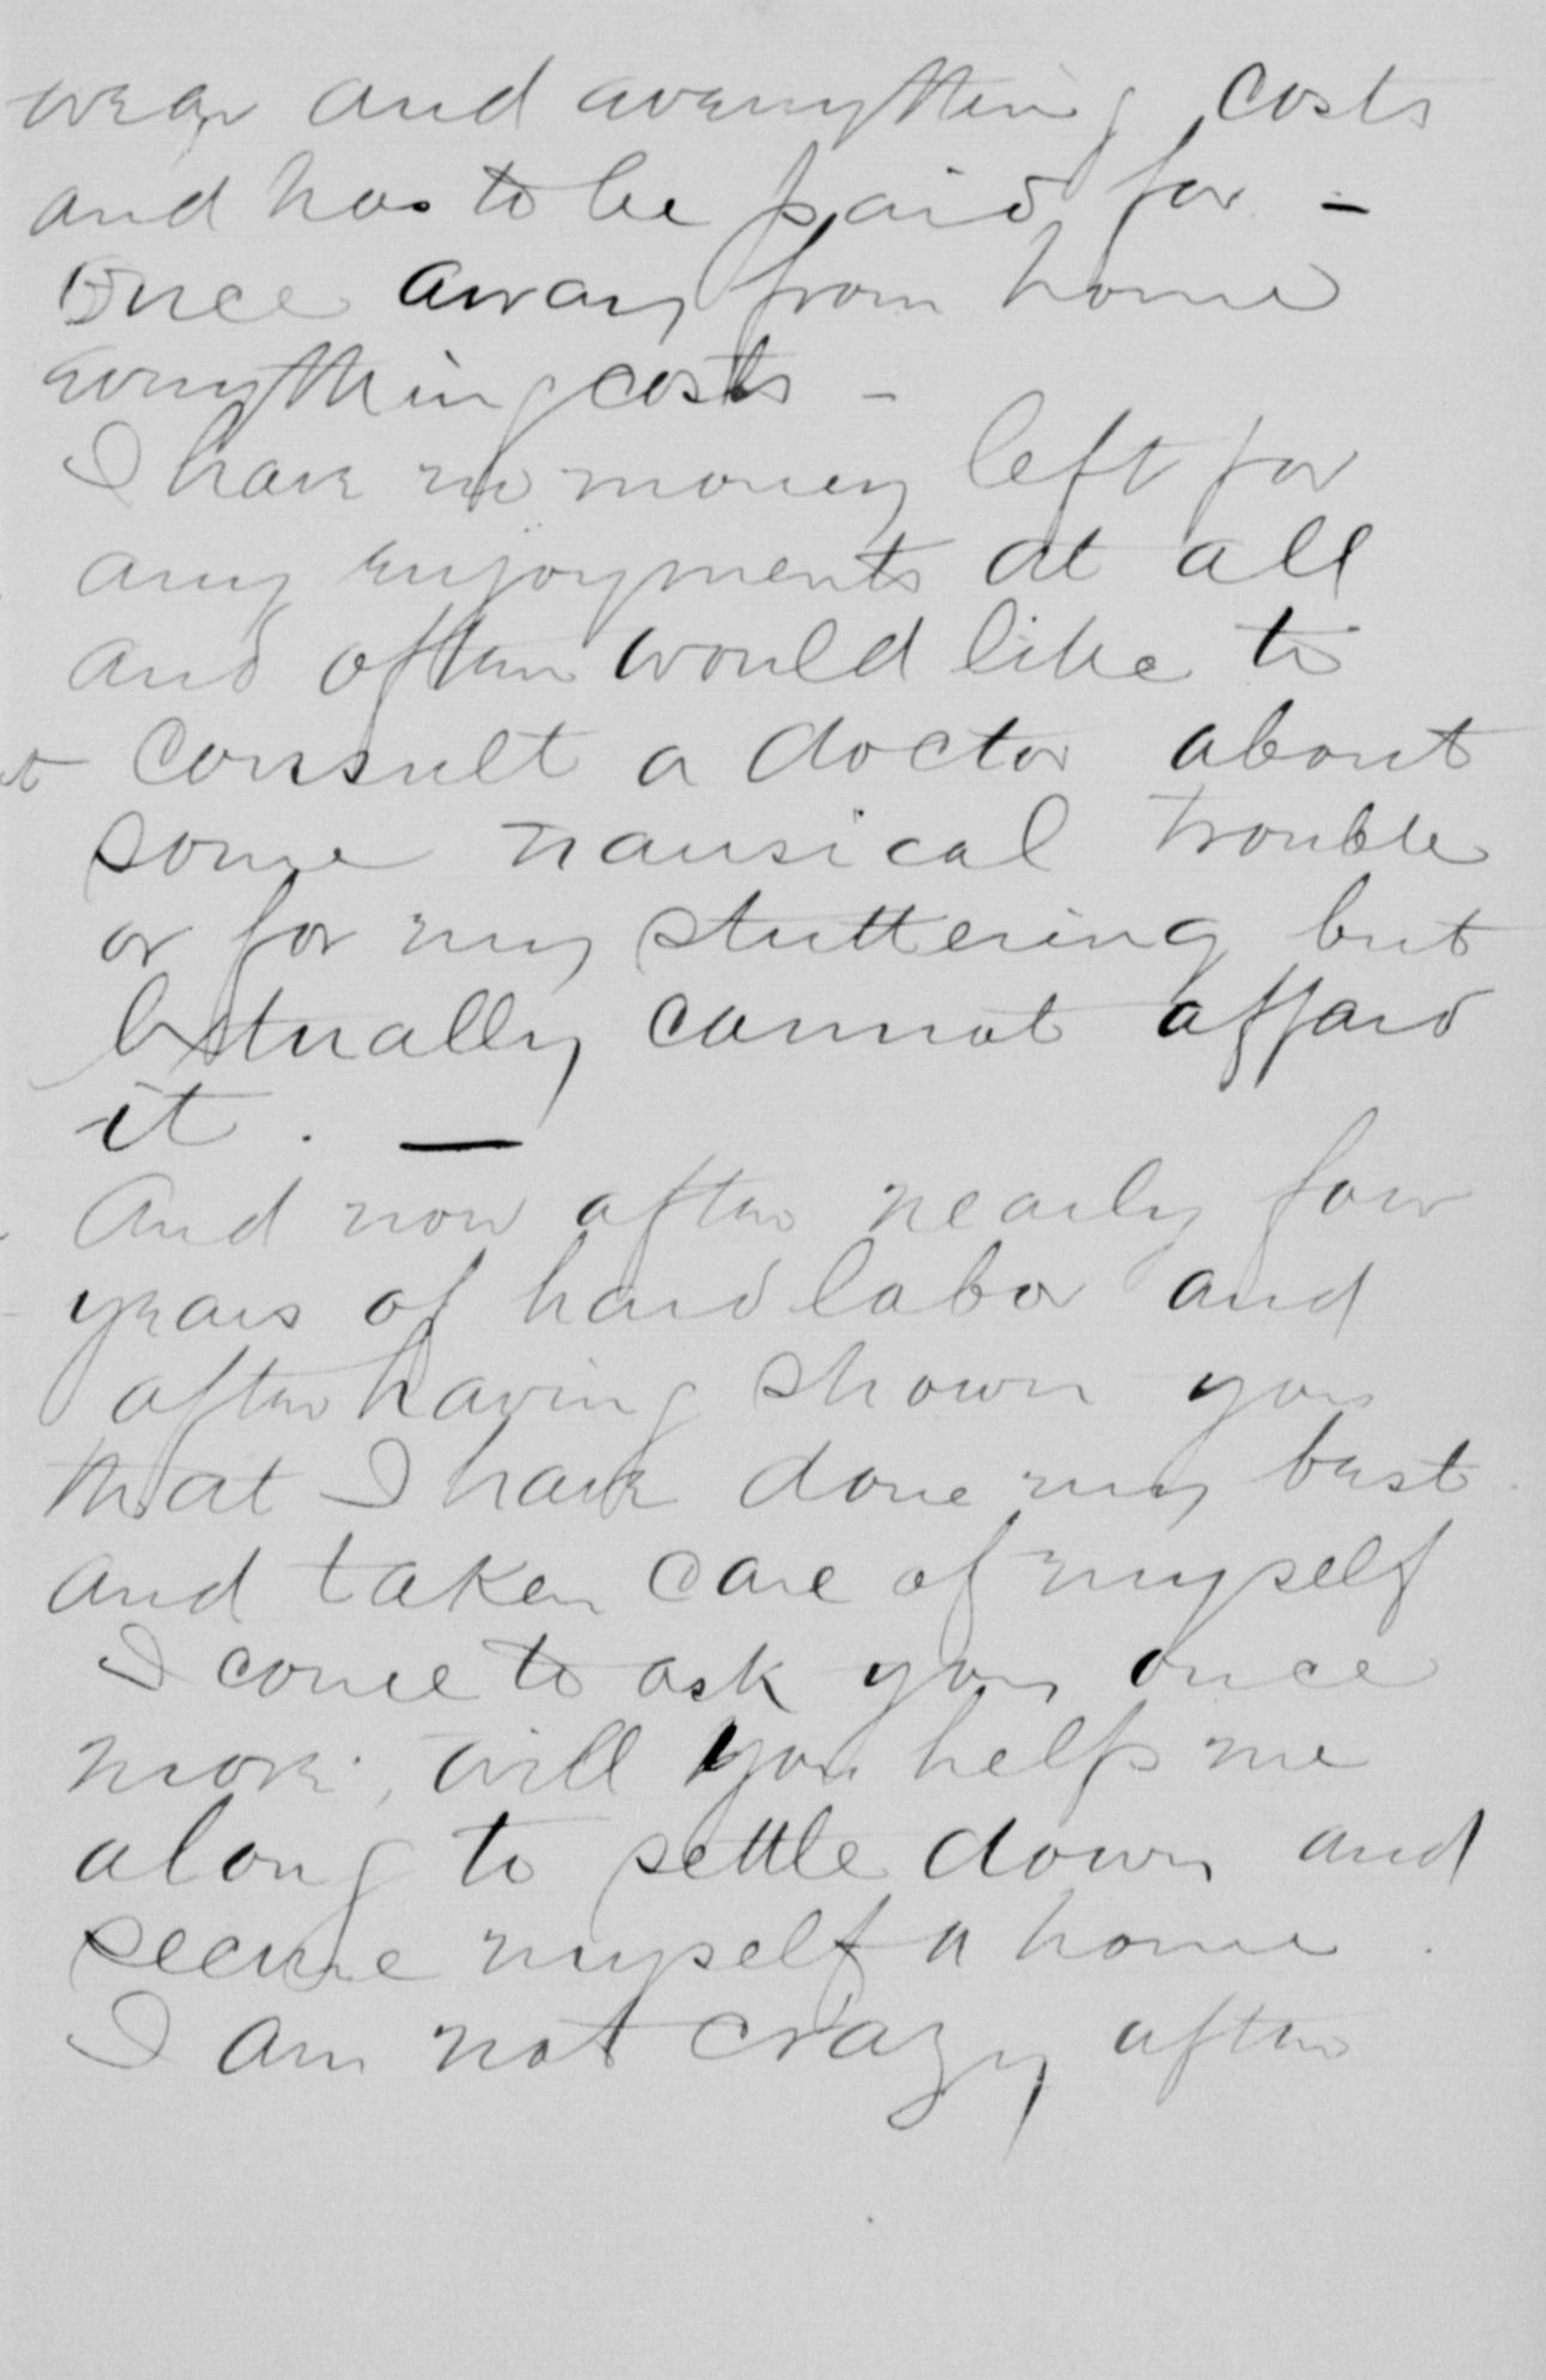 wear and everything costs
and has to be paid for –
Once away from home
everything costs –
I have no money left for
any enjoyments at all
and often would like to
consult a doctor about
some nausical trouble
or for my stuttering but
actually cannot afford
it. —
And now after nearly four
years of hard labor and
after having shown you
that I have done my best
and taken care of myself
I come to ask you once
more, will you help me
along to settle down and
secure myself a home.
I am not crazy after